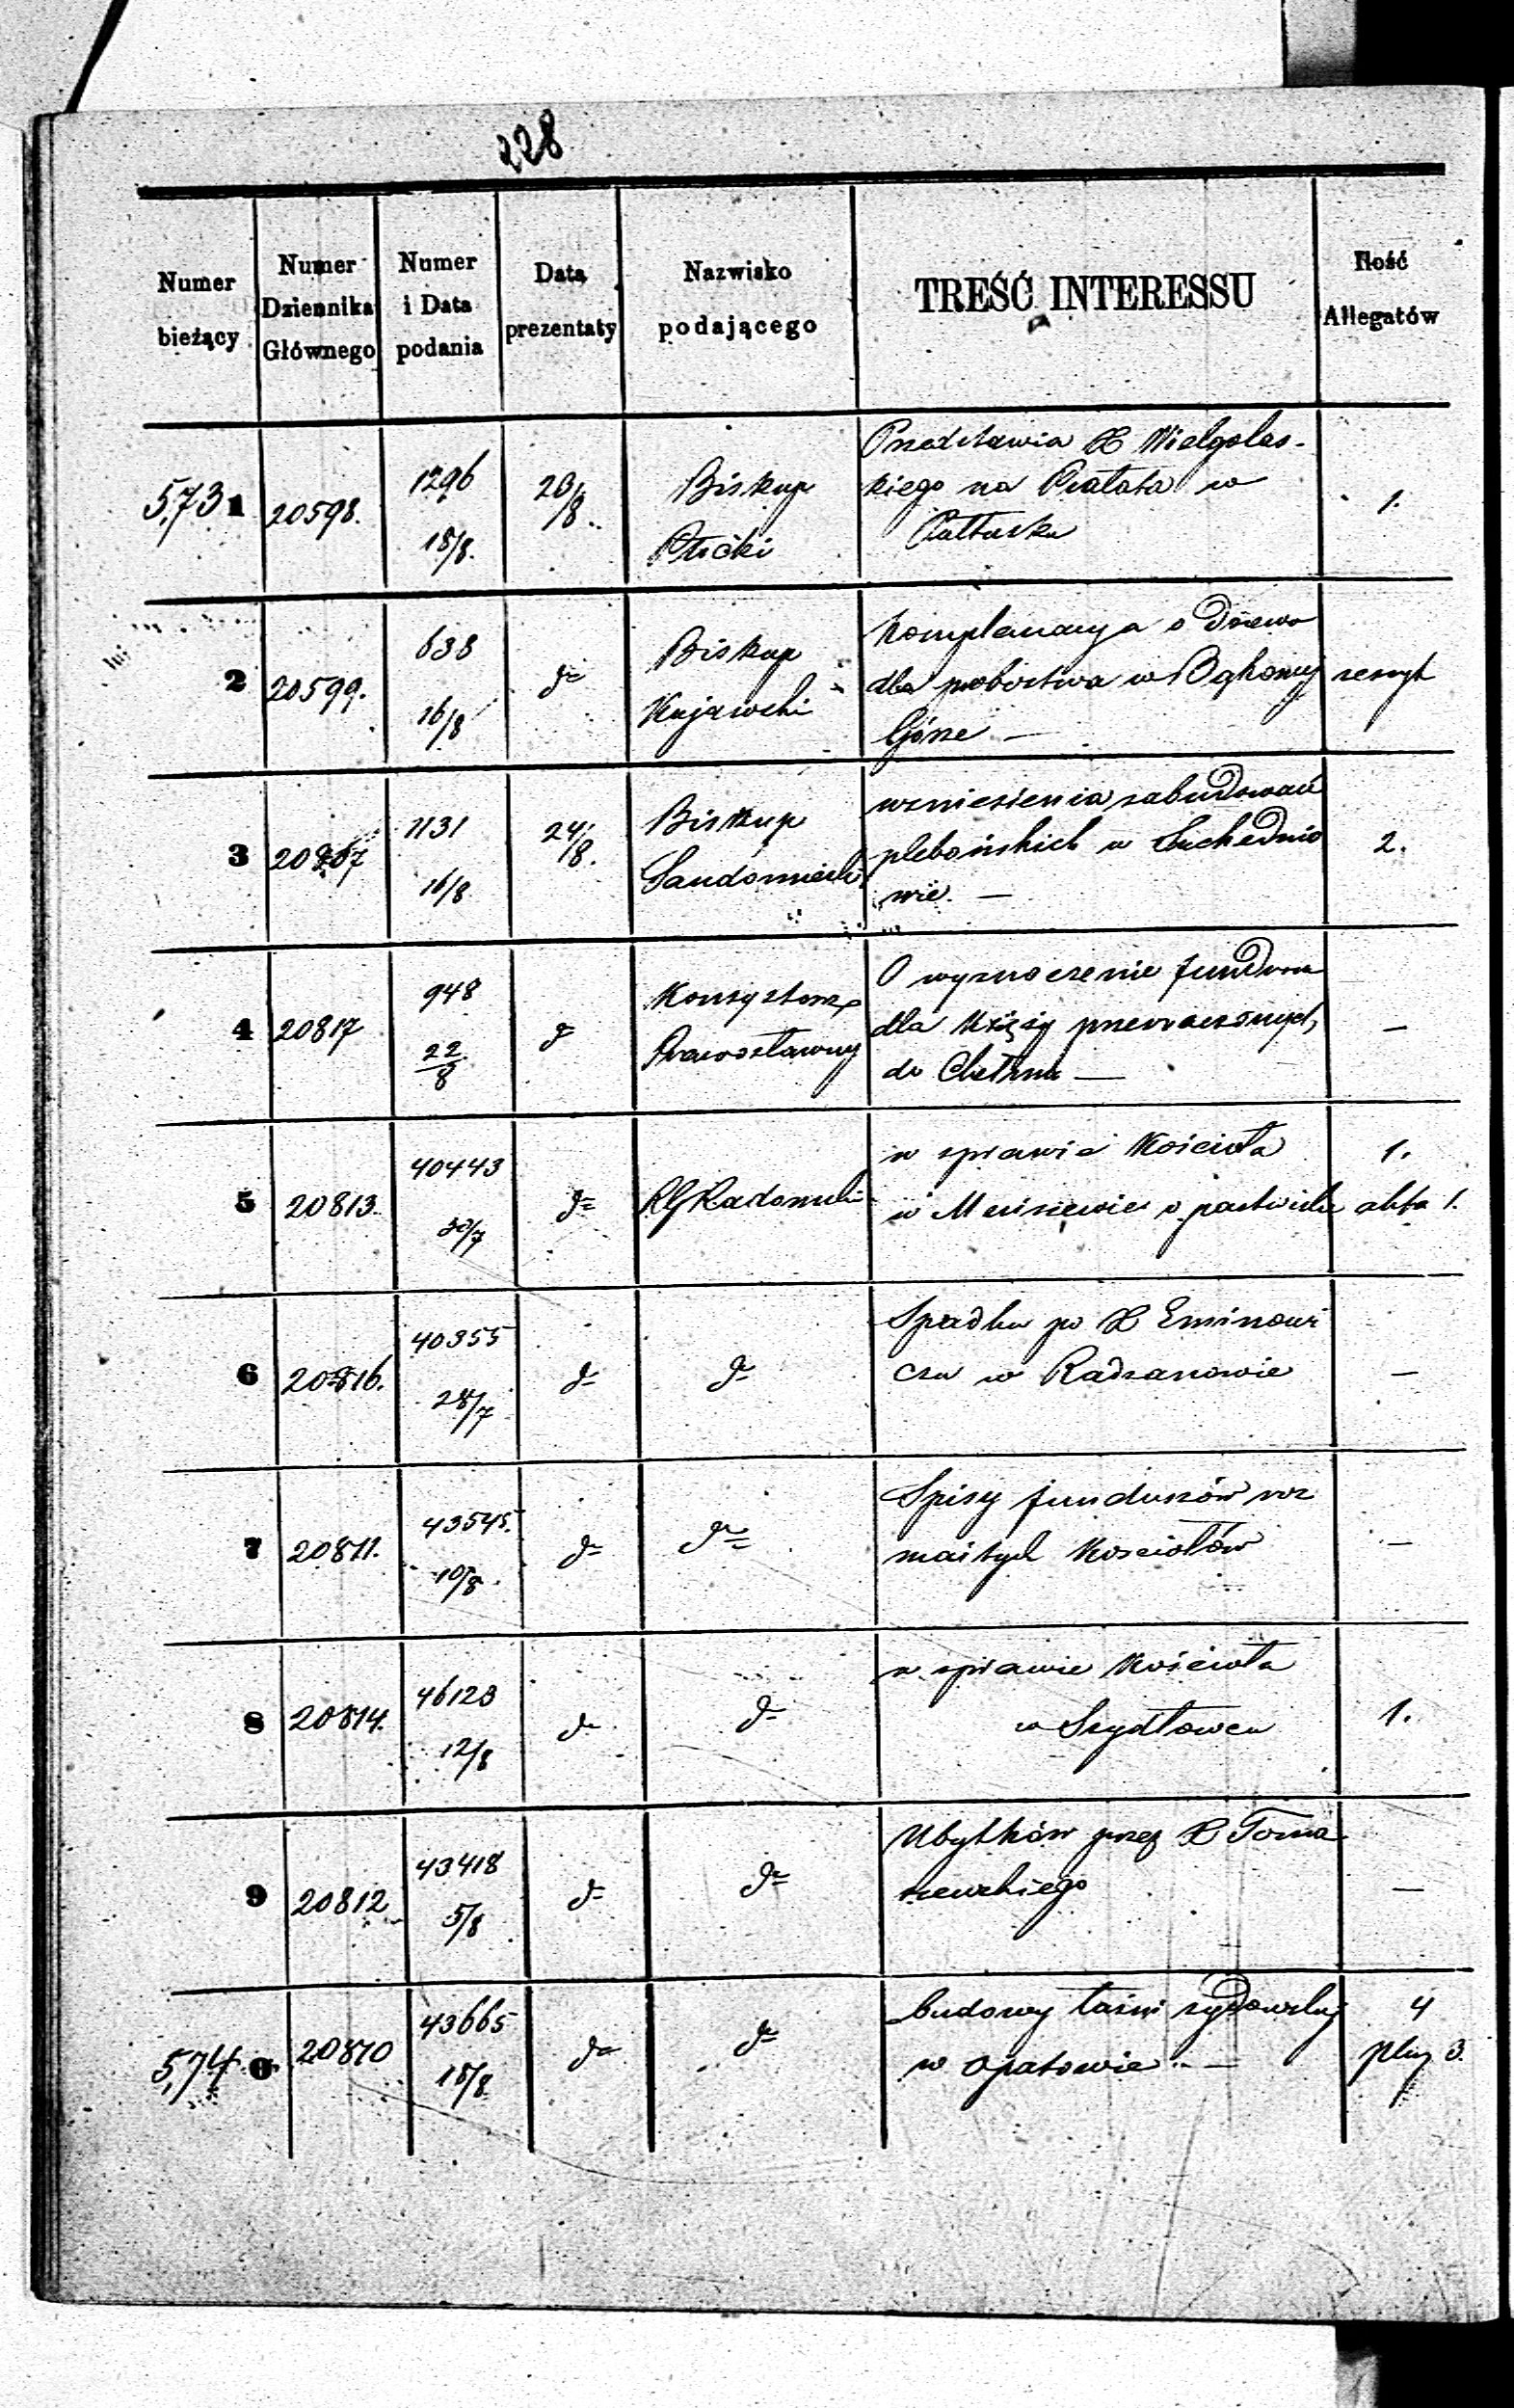 228
Numer bieżący
Numer Dziennika Głównego
Numer i Data podania
Data prezentaty
Nazwisko podającego
TREŚĆ INTERESSU
Ilość Allegatów
5,731
20598.
1296
18/8.
20/8.
Biskup
Płocki
Przedstawia X Wielgolas-
kiego na Prałata w
Pułtusku
1.
2
20599.
638
16/8
d=
Biskup
Kujawski
dla probostwa w
Górze —
zeszyt
3
1131
16/8
24/8.
Biskup
Sandomierski
wzniesienia zabudowań
plebańskich w Suchednio
wie. —
2.
4
20817
948
22/8
d=
Konsystorz
Prawosławny
O wyznaczenie funduszu
dla Księży
do Chełma —
—
5
20813.
40443
30/7
d=
RG Radomski
w sprawie Kościoła
w o
1.
akta 1.
6
20816.
40355
28/7
d=
d=
Spadku po X Eminowi
czu w Radzanowie
—
7
20811.
43545.
10/8.
d=
d=
Spisy funduszów roz
maitych Kościołów
—
8
20814.
46123
12/8
d=
d=
w sprawie Kościoła
w Szydłowcu
1.
9
20812
43418
5/8
d=
d=
Ubytków przez X Toma
szewskiego
—
5,740
20810
43665
d=
d=
budowy łaźni żydowskiej
w Opatowie —
4
3.